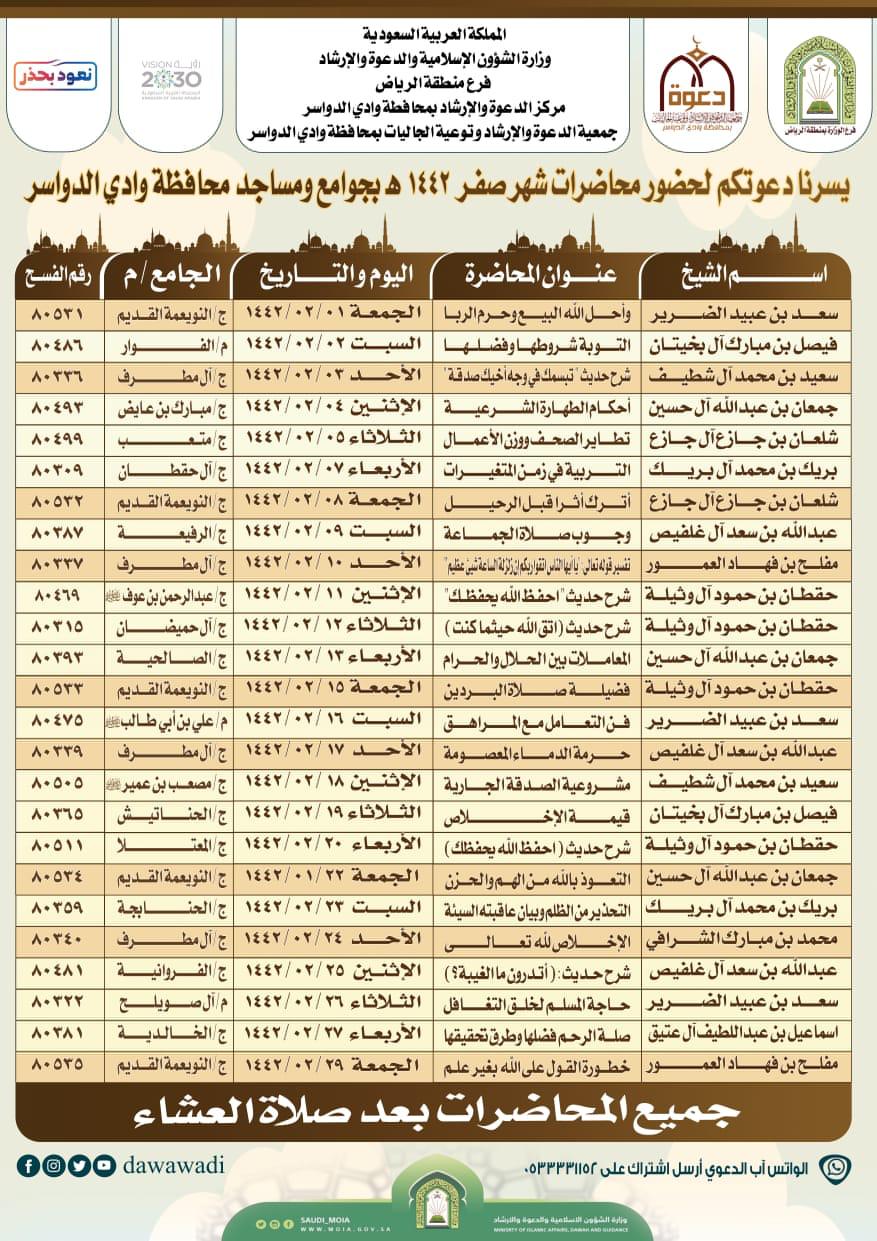 المملكة العربية السعودية
وزارة الشؤون الإسلامية والدعوة والإرشاد
فرع منطقة الرياض
مركز الدعوة والإرشاد بمحافظة وادي الدواسر
جمعية الدعوة والإرشاد وتوعية الجاليات بمحافظة وادي الدواسر
فرع الوزارة بمنطقة الرياض
دعوة
بمحافظة وادي الدواسر
رؤية VISION
2030
المملكة العربية السعودية
KINGDOM OF SAUDI ARABIA
نعود بحذر
يسرنا دعوتكم لحضور محاضرات شهر صفر ١٤٤٢ هـ بجوامع ومساجد محافظة وادي الدواسر
اسم الشيخ عنوان المحاضرة اليوم والتاريخ الجامع / م رقم الفسح
سعد بن عبيد الضرير وأحل الله البيع وحرم الربا الجمعة ١٤٤٢/٠٢/٠١ ج/النويعمة القديم ٨٠٥٣١
فيصل بن مبارك آل بخيتان التوبة شروطها وفضلها السبت ١٤٤٢/٠٢/٠٢ م/الفوار ٨٠٤٨٦
سعيد بن محمد آل شطيف شرح حديث "تبسمك في وجه أخيك صدقة" الأحد ١٤٤٢/٠٢/٠٣ ج/آل مطرف ٨٠٣٣٦
جمعان بن عبدالله آل حسين أحكام الطهارة الشرعية الإثنين ١٤٤٢/٠٢/٠٤ ج/مبارك بن عايض ٨٠٤٩٣
شلعان بن جازع آل جازع تطاير الصحف ووزن الأعمال الثلاثاء ١٤٤٢/٠٢/٠٥ ج/متعب ٨٠٤٩٩
بريك بن محمد آل بريك التربية في زمن المتغيرات الأربعاء ١٤٤٢/٠٢/٠٧ ج/آل حقطان ٨٠٣٠٩
شلعان بن جازع آل جازع أترك أثرا قبل الرحيل الجمعة ١٤٤٢/٠٢/٠٨ ج/النويعمة القديم ٨٠٥٣٢
عبدالله بن سعد آل غلفيص وجوب صلاة الجماعة السبت ١٤٤٢/٠٢/٠٩ ج/الرفيعة ٨٠٣٨٧
مفلح بن فهاد العمور تفسير قوله تعالى: "يا أيها الناس اتقوا ربكم إن زلزلة الساعة شيئ عظيم" الأحد ١٤٤٢/٠٢/١٠ ج/آل مطرف ٨٠٣٣٧
حقطان بن حمود آل وثيلة شرح حديث "احفظ الله يحفظك" الإثنين ١٤٤٢/٠٢/١١ ج/عبدالرحمن بن عوف ٨٠٤٦٩
حقطان بن حمود آل وثيلة شرح حديث (اتق الله حيثما كنت) الثلاثاء ١٤٤٢/٠٢/١٢ ج/آل حميضان ٨٠٣١٥
جمعان بن عبدالله آل حسين المعاملات بين الحلال والحرام الأربعاء ١٤٤٢/٠٢/١٣ ج/الصالحية ٨٠٣٩٣
حقطان بن حمود آل وثيلة فضيلة صلاة البردين الجمعة ١٤٤٢/٠٢/١٥ ج/النويعمة القديم ٨٠٥٣٣
سعد بن عبيد الضرير فن التعامل مع المراهق السبت ١٤٤٢/٠٢/١٦ م/علي بن أبي طالب ٨٠٤٧٥
عبدالله بن سعد آل غلفيص حرمة الدماء المعصومة الأحد ١٤٤٢/٠٢/١٧ ج/آل مطرف ٨٠٣٣٩
سعيد بن محمد آل شطيف مشروعية الصدقة الجارية الإثنين ١٤٤٢/٠٢/١٨ ج/مصعب بن عمير ٨٠٥٠٥
فيصل بن مبارك آل بخيتان قيمة الإخلاص الثلاثاء ١٤٤٢/٠٢/١٩ ج/الحناتيش ٨٠٣٦٥
حقطان بن حمود آل وثيلة شرح حديث (احفظ الله يحفظك) الأربعاء ١٤٤٢/٠٢/٢٠ ج/المعتلا ٨٠٥١١
جمعان بن عبدالله آل حسين التعوذ بالله من الهم والحزن الجمعة ١٤٤٢/٠١/٢٢ ج/النويعمة القديم ٨٠٥٣٤
بريك بن محمد آل بريك التحذير من الظلم وبيان عاقبته السيئة السبت ١٤٤٢/٠٢/٢٣ ج/الحنابجة ٨٠٣٥٩
محمد بن مبارك الشرافي الإخلاص لله تعالى الأحد ١٤٤٢/٠٢/٢٤ ج/آل مطرف ٨٠٣٤٠
عبدالله بن سعد آل غلفيص شرح حديث: (أتدرون ما الغيبة؟) الإثنين ١٤٤٢/٠٢/٢٥ ج/الفروانية ٨٠٤٨١
سعد بن عبيد الضرير حاجة المسلم لخلق التغافل الثلاثاء ١٤٤٢/٠٢/٢٦ م/آل صويلح ٨٠٣٢٢
اسماعيل بن عبداللطيف آل عتيق صلة الرحم فضلها وطرق تحقيقها الأربعاء ١٤٤٢/٠٢/٢٧ ج/الخالدية ٨٠٣٨١
مفلح بن فهاد العمور خطورة القول على الله بغير علم الجمعة ١٤٤٢/٠٢/٢٩ ج/النويعمة القديم ٨٠٥٣٥
جميع المحاضرات بعد صلاة العشاء
الواتس آب الدعوي أرسل اشتراك على ٠٥٣٣٣٣١١٥٢
dawawadi
SAUDI_MOIA
WWW.MOIA.GOV.SA
وزارة الشؤون الإسلامية والدعوة والإرشاد
MINISTRY OF ISLAMIC AFFAIRS, DAWAH AND GUIDANCE